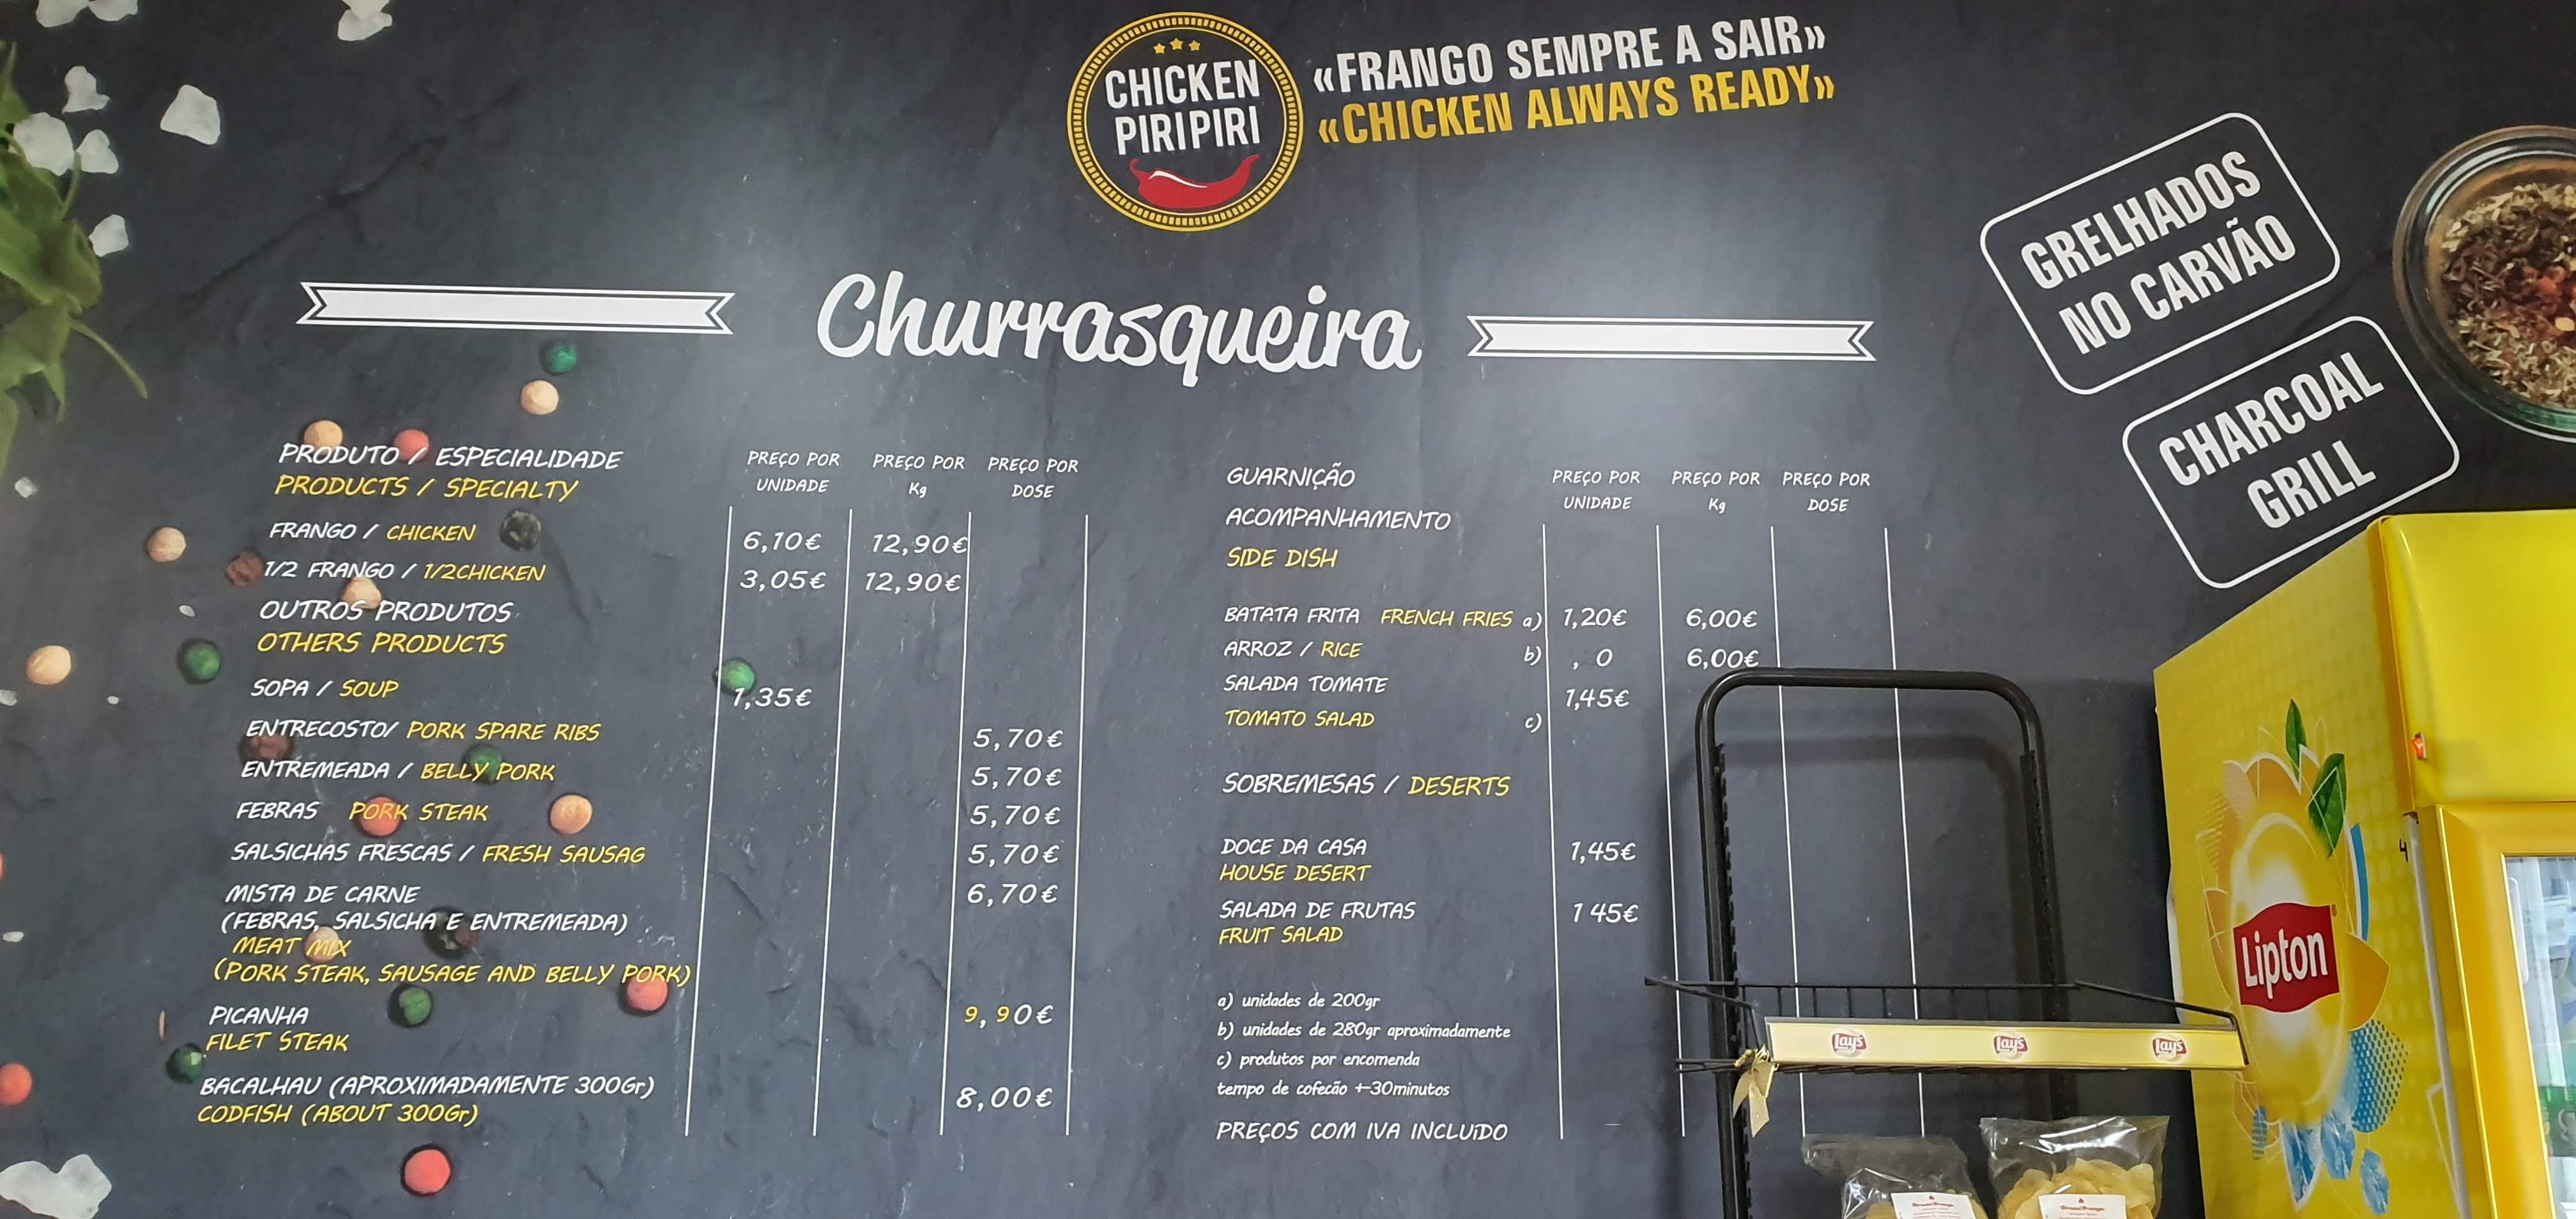 CHICKEN
PIRIPIRI
«FRANGO SEMPRE A SAIR»
«CHICKEN ALWAYS READY»
GRELHADOS
NO CARVÃO
CHARCOAL
GRILL
Churrasqueira
PRODUTO / ESPECIALIDADE
PRODUCTS / SPECIALTY
PREÇO POR UNIDADE
PREÇO POR Kg
PREÇO POR DOSE
FRANGO / CHICKEN 6,10€ 12,90€
1/2 FRANGO / 1/2CHICKEN 3,05€ 12,90€
OUTROS PRODUTOS
OTHERS PRODUCTS
SOPA / SOUP 1,35€
ENTRECOSTO/ PORK SPARE RIBS 5,70€
ENTREMEADA / BELLY PORK 5,70€
FEBRAS PORK STEAK 5,70€
SALSICHAS FRESCAS / FRESH SAUSAG 5,70€
MISTA DE CARNE 6,70€
(FEBRAS, SALSICHA E ENTREMEADA)
MEAT MIX
(PORK STEAK, SAUSAGE AND BELLY PORK)
PICANHA 9,90€
FILET STEAK
BACALHAU (APROXIMADAMENTE 300Gr) 8,00€
CODFISH (ABOUT 300Gr)
GUARNIÇÃO
ACOMPANHAMENTO
SIDE DISH
PREÇO POR UNIDADE
PREÇO POR Kg
PREÇO POR DOSE
BATATA FRITA FRENCH FRIES a) 1,20€ 6,00€
ARROZ / RICE b) , 0 6,00€
SALADA TOMATE 1,45€
TOMATO SALAD c)
SOBREMESAS / DESERTS
DOCE DA CASA 1,45€
HOUSE DESERT
SALADA DE FRUTAS 1 45€
FRUIT SALAD
a) unidades de 200gr
b) unidades de 280gr aproximadamente
c) produtos por encomenda
tempo de cofecão +-30minutos
PREÇOS COM IVA INCLUiDO
Lipton
Lay's
Lay's
Lay's